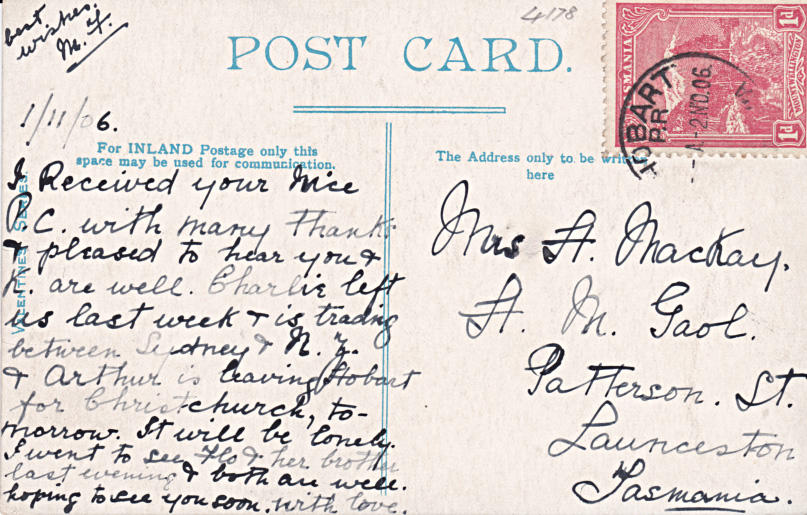 best
wishes.
M. F.
4178
POST CARD.
TASMANIA
1D
1D
MOUNT WELLINGTON
HOBART
P.R
A-2 NO.06
1/11/06.
For INLAND Postage only this
space may be used for communication.
The Address only to be written
here
VALENTINES SERIES
I Received your Nice
P.C. with many Thanks
& pleased to hear you &
K. are well. Charlie left
us last week & is trading
between Sydney & N. Z.
& Arthur is leaving Hobart
for Christchurch, to-
morrow. It will be lonely.
I went to see Flo & her brother
last evening & both are well.
hoping to see you soon. with love.
Mrs H. Mackay.
H. M. Gaol.
Patterson. St.
Launceston
Tasmania.